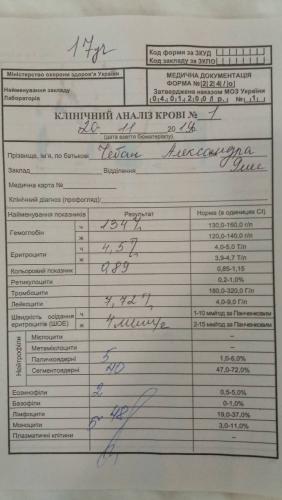 17уч
Код форми за ЗКУД
Код закладу за ЗКПО
Міністерство охорони здоров'я України
Найменування закладу
Лабораторія
МЕДИЧНА ДОКУМЕНТАЦІЯ
ФОРМА № 2 2 4 / о
Затверджена наказом МОЗ України
0 4 . 0 1 . 2 0 0 1 р. № 1
КЛІНІЧНИЙ АНАЛІЗ КРОВІ № 1
20 11 2019р.
(дата взяття біоматеріалу)
Прізвище, ім'я, по батькові Чебан Александра
Заклад Відділення
Медична карта №
Клінічний діагноз (профогляд):
Найменування показників Результат Норма (в одиницях СІ)
Гемоглобін ч 134 130,0-160,0 г/л
ж 120,0-140,0 г/л
Еритроцити ч 4,5 4,0-5,0 Т/л
ж 3,9-4,7 Т/л
Кольоровий показник 0,89 0,85-1,15
Ретикулоцити 0,2-1,0%
Тромбоцити 180,0-320,0 Г/л
Лейкоцити 7,72 4,0-9,0 Г/л
Швидкість осідання еритроцитів (ШОЕ) ч 1-10 мм/год за Панченковим
ж 4 мм/ч 2-15 мм/год за Панченковим
Нейтрофіли
Мієлоцити –
Метамієлоцити –
Паличкоядерні 5 1,0-6,0%
Сегментоядерні 40 47,0-72,0%
Еозинофіли 2 0,5-5,0%
Базофіли 0-1,0%
Лімфоцити 48 19,0-37,0%
Моноцити 5 3,0-11,0%
Плазматичні клітини –